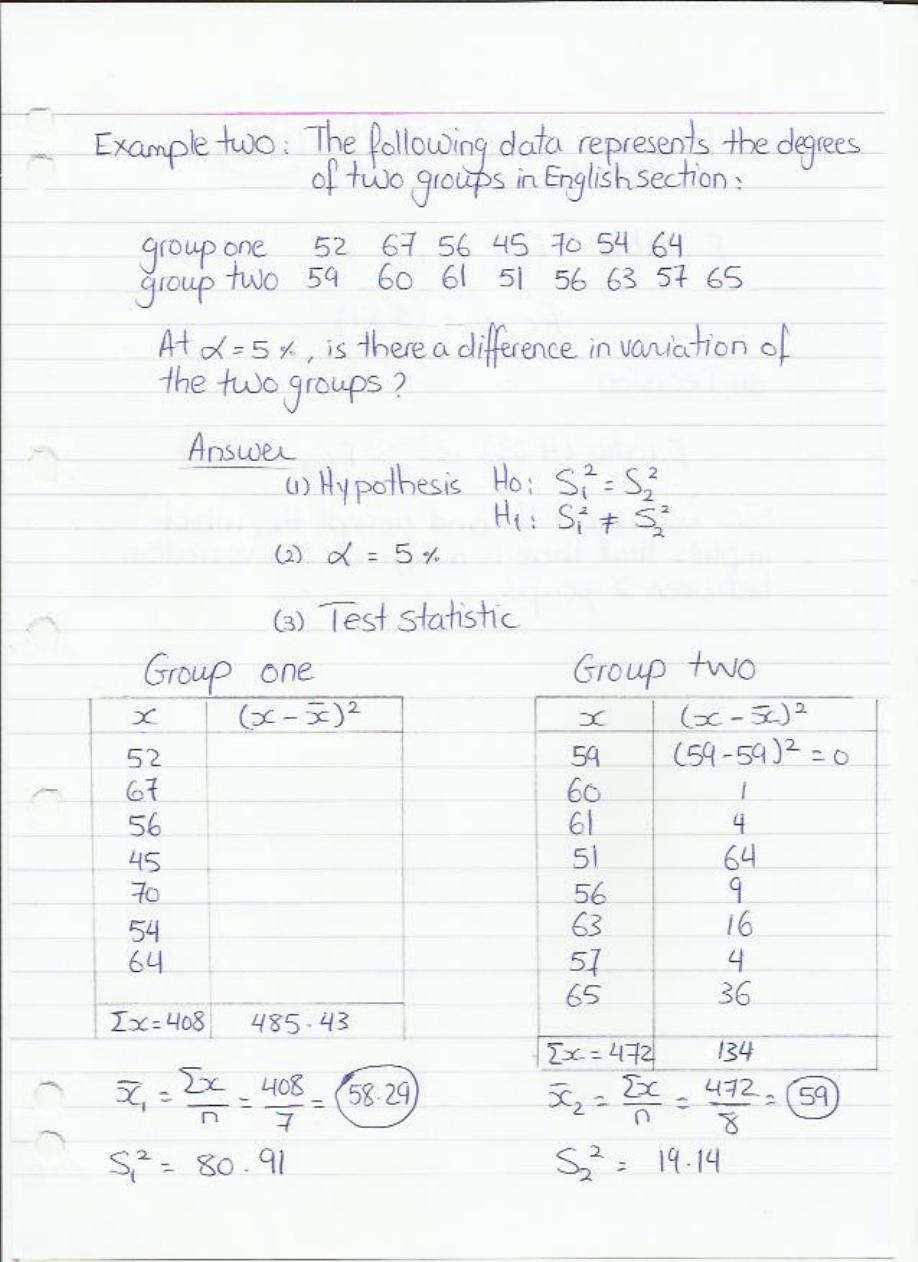 Example two: The following data represents the degrees
of two groups in English section:
group one 52 67 56 45 70 54 64
group two 59 60 61 51 56 63 57 65
At α = 5 %, is there a difference in variation of
the two groups?
Answer
(1) Hypothesis Ho: S₁² = S₂²
H₁: S₁² ≠ S₂²
(2) α = 5 %
(3) Test statistic
Group one
x (x - x̄)²
52
67
56
45
70
54
64
Σx = 408 485.43
x̄₁ = Σx/n = 408/7 = 58.29
S₁² = 80.91
Group two
x (x - x̄)²
59 (59 - 59)² = 0
60 1
61 4
51 64
56 9
63 16
57 4
65 36
Σx = 472 134
x̄₂ = Σx/n = 472/8 = 59
S₂² = 19.14